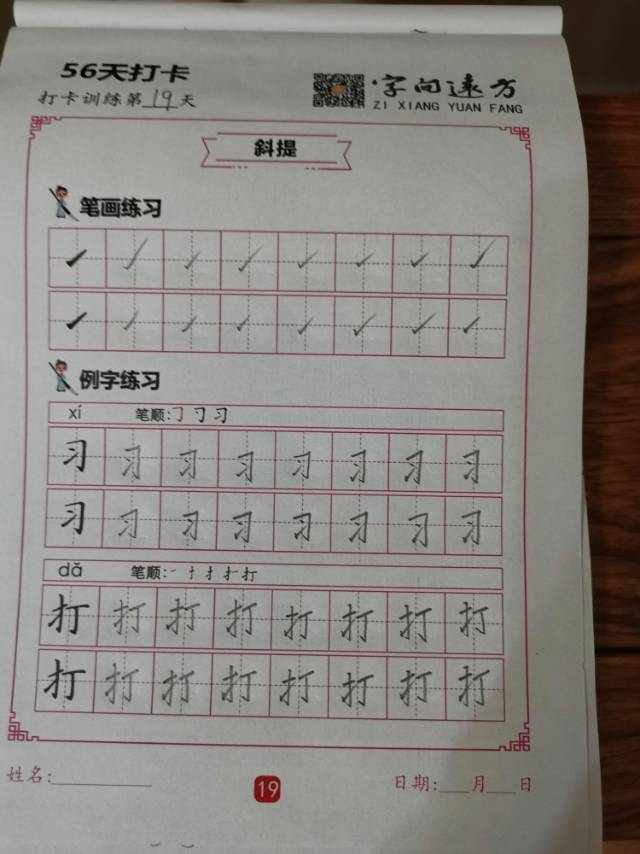 56天打卡
打卡训练第19天
字向远方
ZI XIANG YUAN FANG
斜提
笔画练习
例字练习
xí 笔顺:
习 习 习 习 习 习 习 习
习 习 习 习 习 习 习 习
dǎ 笔顺:
打 打 打 打 打 打 打 打
打 打 打 打 打 打 打 打
姓名:
19
日期: 月 日